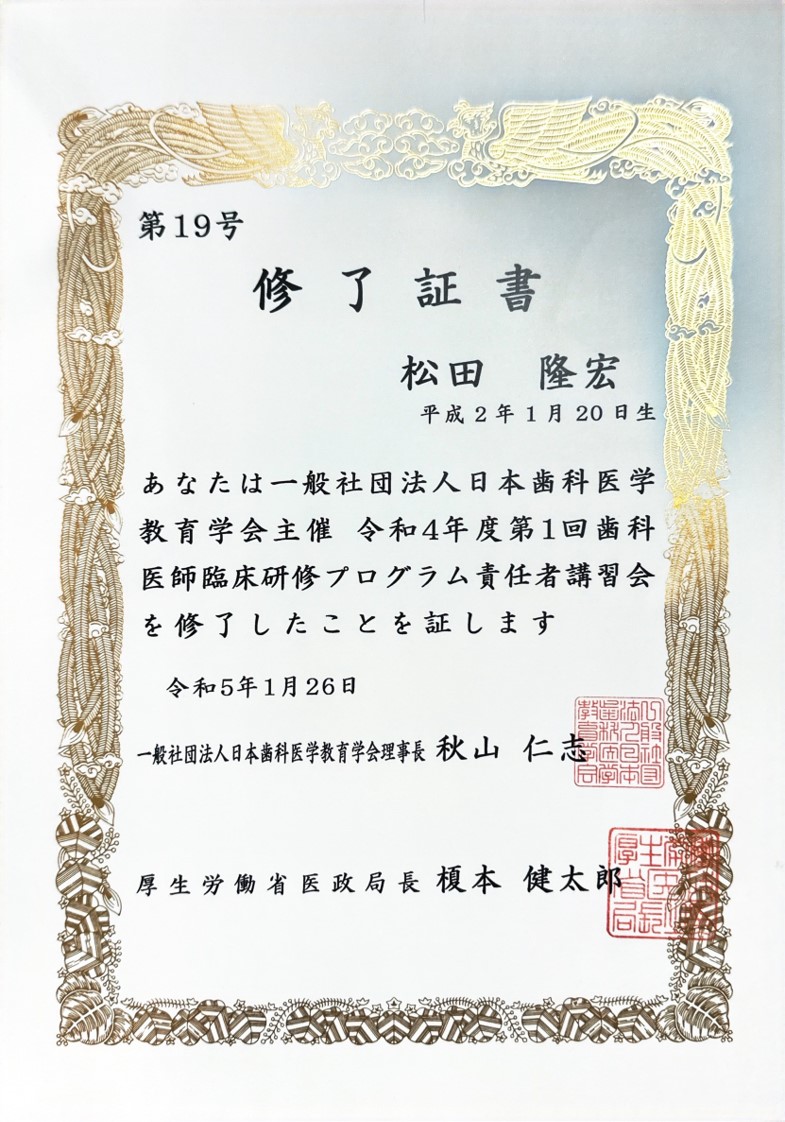 第19号
修了証書
松田 隆宏
平成2年1月20日生
あなたは一般社団法人日本歯科医学
教育学会主催 令和4年度第1回歯科
医師臨床研修プログラム責任者講習会
を修了したことを証します
令和5年1月26日
一般社団法人日本歯科医学教育学会理事長 秋山 仁志
厚生労働省医政局長 榎本 健太郎